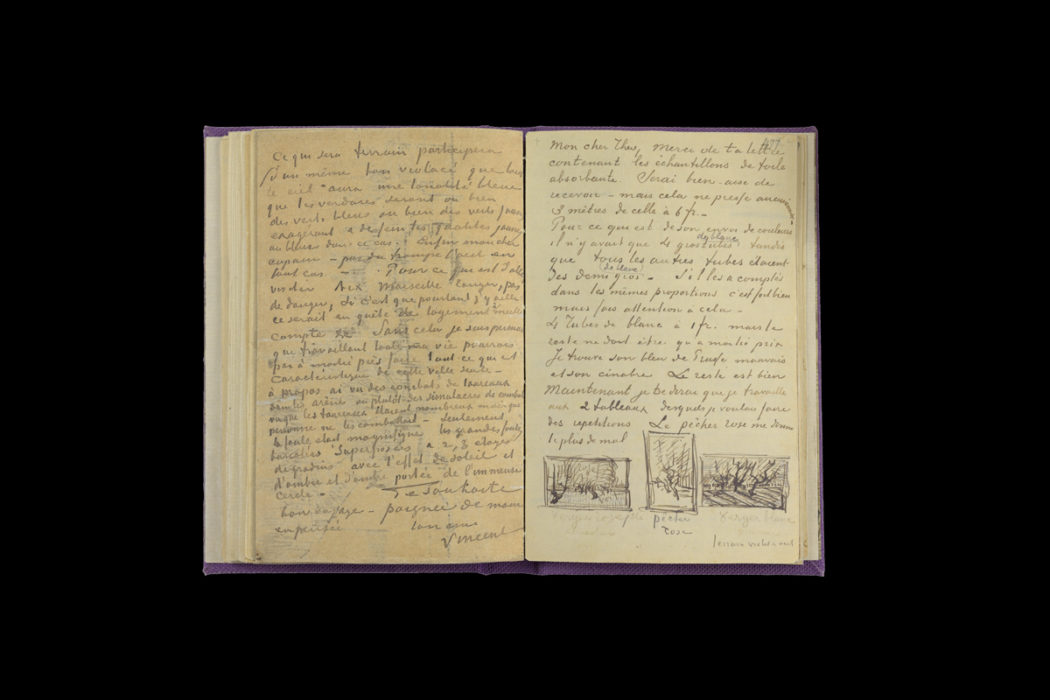 Ce qui sera terrain participera
d'un même ton violacé que tout
le ciel aura une tonalité bleue
que les verdures seront ou bien
des verts bleus ou bien des verts jaunes
exagérant à dessein les qualités jaunes
ou bleues dans ce cas. Enfin mon cher
copain – pas de trompe l'œil en
tout cas – Pour ce qui est d'aller
visiter Aix Marseille Tanger, pas
de danger, si c'est que pourtant j'y aille
ce serait en quête de logement meilleur
compte &c Sans cela je sens
que travaillant toute ma vie pourrais
pas à moitié près faire tout ce qui est
caractéristique de cette ville seule –
à propos ai vu des combats de taureaux
dans les arènes ou plutôt des simulacres de combat
vu que les taureaux étaient nombreux mais que
personne ne les combattait – Seulement,
la foule était magnifique les grandes foules
superposées à 2, 3 étages
de gradins avec l'effet de soleil et
d'ombre et l'ombre portée de l'immense
cercle –
Je souhaite
bon voyage – poignée de main
en pensée
ton ami
Vincent
Mon cher Theo, Merci de ta lettre
contenant les échantillons de toile
absorbante. Serai bien-aise de
recevoir – mais cela ne presse aucunement –
3 mètres de celle à 6 fr. –
Pour ce qui est de son envoi de couleurs
il n'y avait que 4 gros tubes de blanc tandis
que tous les autres tubes étaient
des demi gros de blanc – S'il les a comptés
dans les mêmes proportions c'est fort bien
mais fais attention à cela –
4 Tubes de blanc à 1 fr. mais le
reste ne doit être qu'à moitié prix
Je trouve son bleu de Prusse mauvais
et son cinabre Le reste est bien
Maintenant je te dirai que je travaille
aux 2 tableaux desquels je voulais faire
des répétitions Le pêcher rose me donne
le plus de mal
pêcher
rose
Verger blanc
terrain